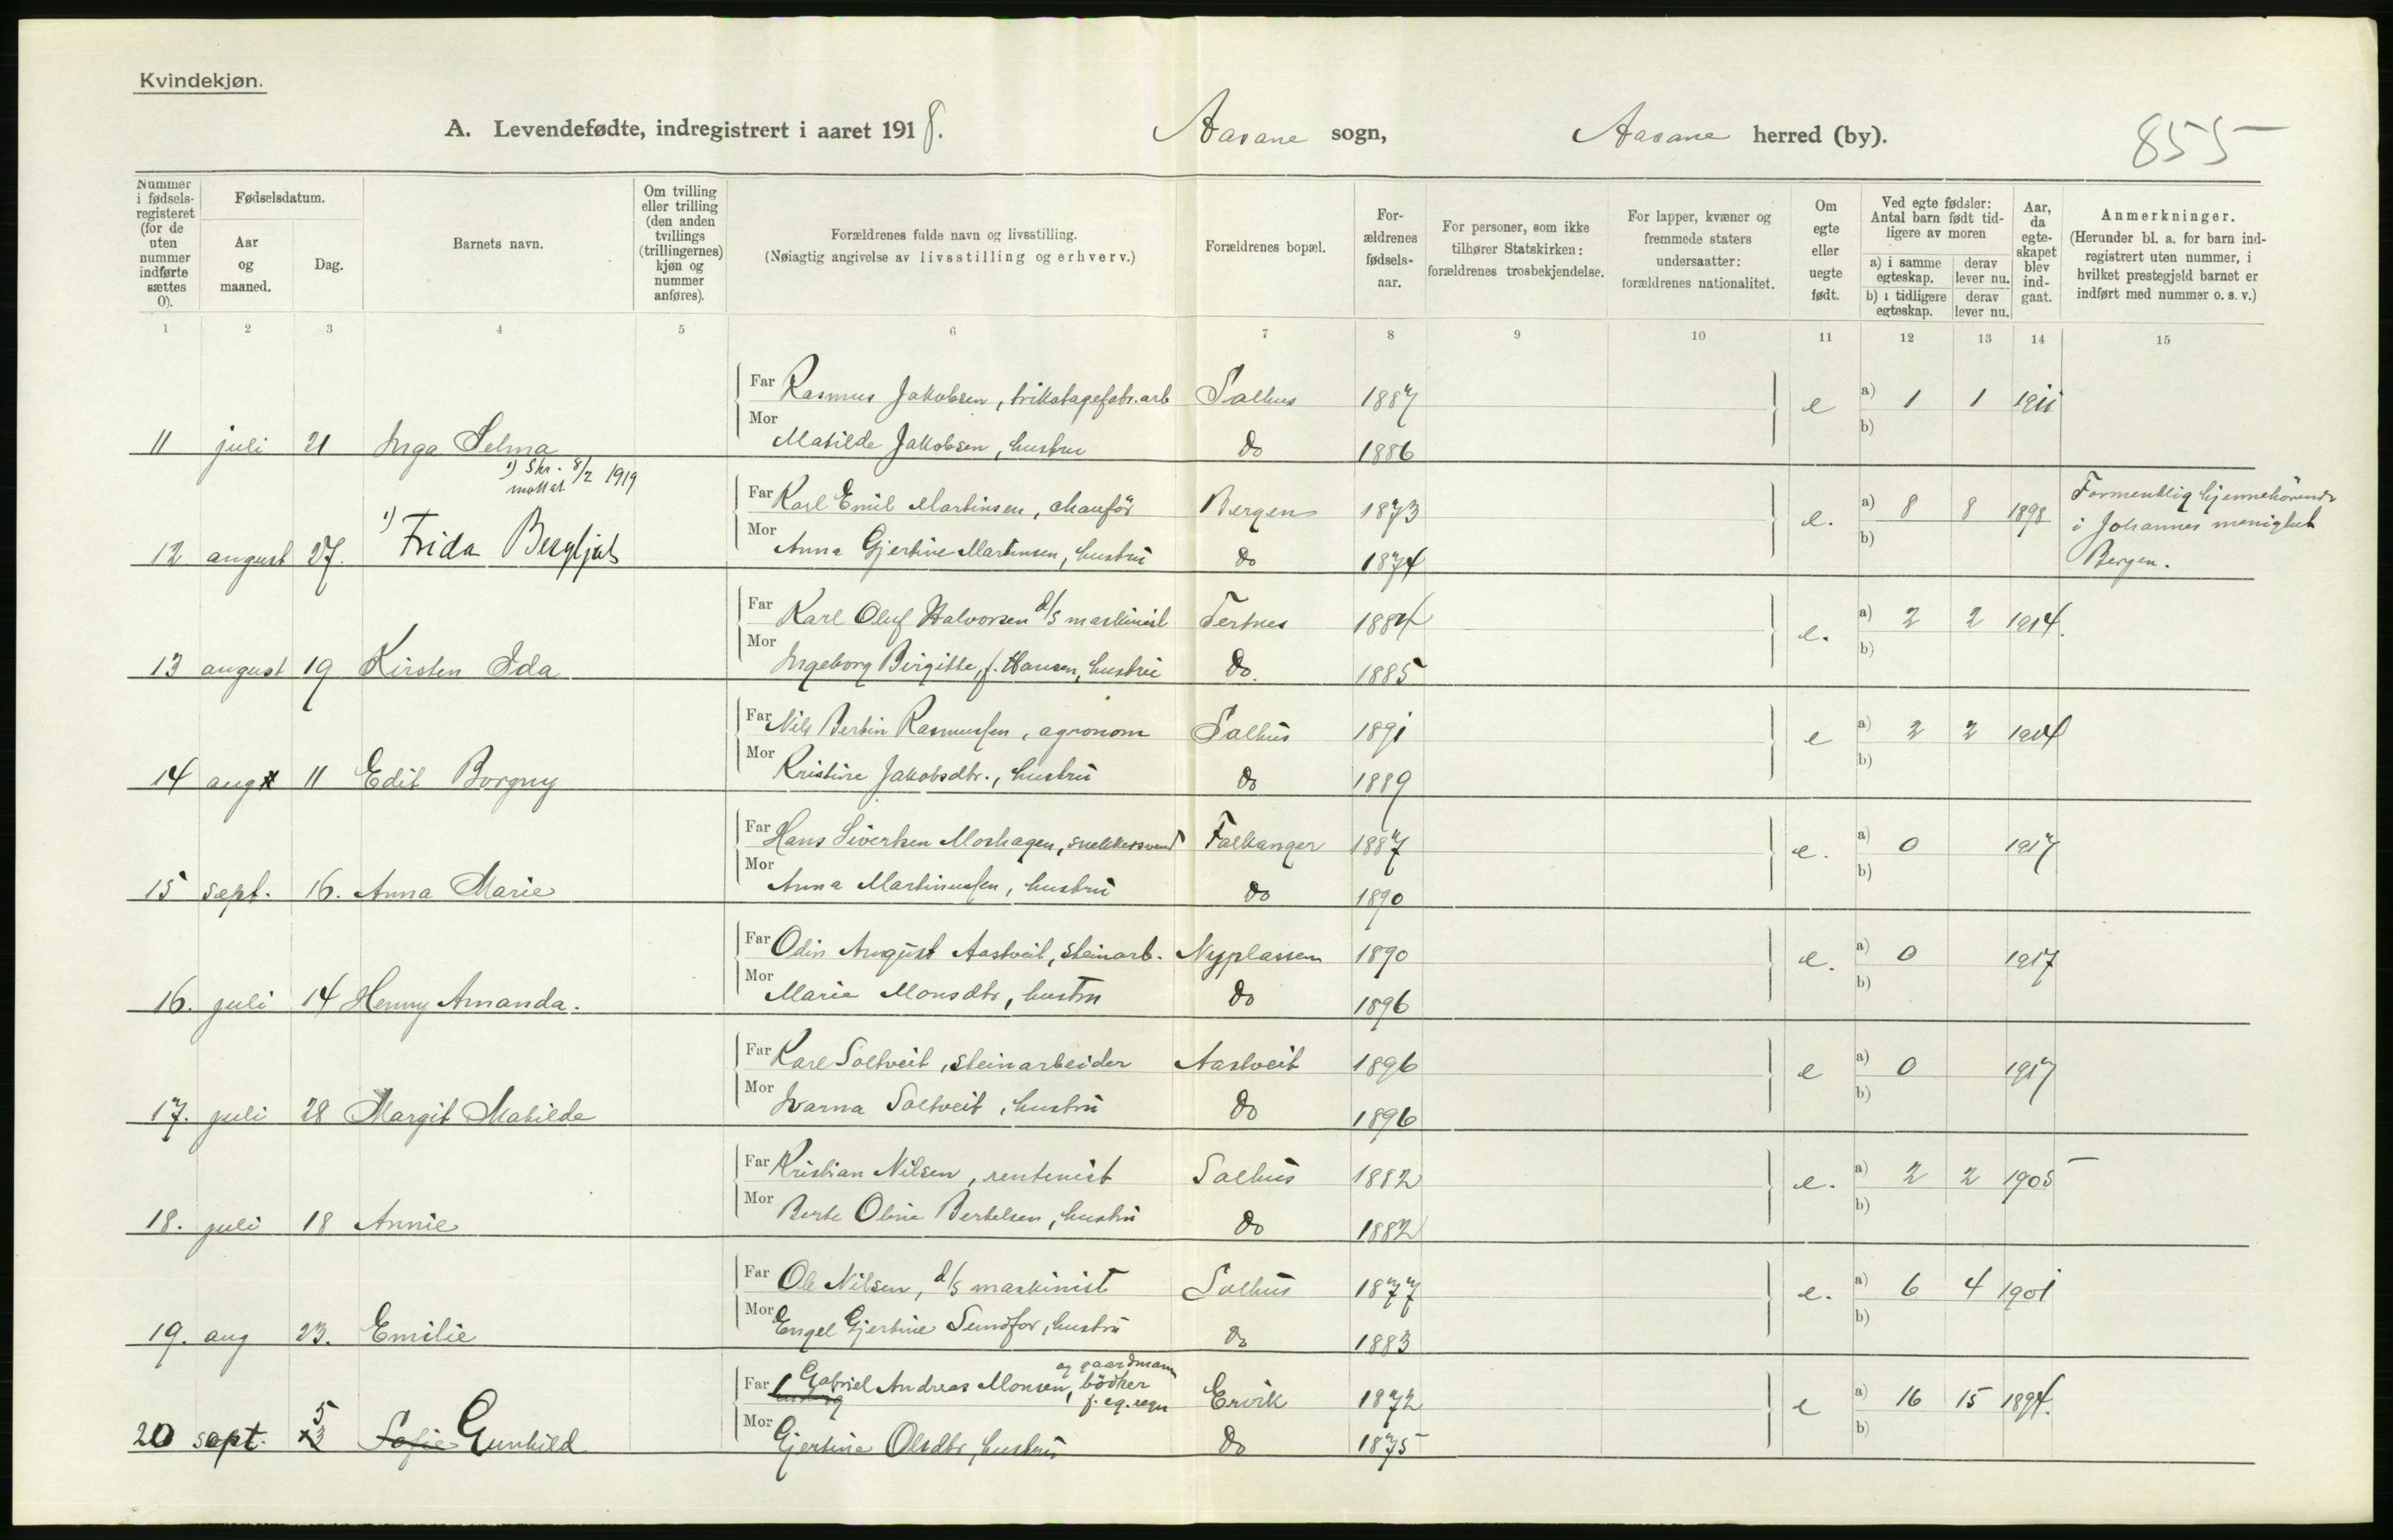 Kvindekjøn.
A. Levendefødte, indregistrert i aaret 1918. Aasane sogn, Aasane herred (by). 855
Nummer i fødsels-registeret (for de uten nummer indførte sættes 0).
Fødselsdatum.
Aar og maaned.
Dag.
Barnets navn.
Om tvilling eller trilling (den anden tvillings (trillingernes) kjøn og nummer anføres).
Forældrenes fulde navn og livsstilling.
(Nøiagtig angivelse av livsstilling og erhverv.)
Forældrenes bopæl.
For-ældrenes fødsels-aar.
For personer, som ikke tilhører Statskirken: forældrenes trosbekjendelse.
For lapper, kvæner og fremmede staters undersaatter: forældrenes nationalitet.
Om egte eller uegte født.
Ved egte fødsler: Antal barn født tid-ligere av moren
a) i samme egteskap. derav lever nu.
b) i tidligere egteskap. derav lever nu.
Aar, da egte-skapet blev ind-gaat.
Anmerkninger.
(Herunder bl. a. for barn ind-registrert uten nummer, i hvilket prestegjeld barnet er indført med nummer o. s. v.)
1 2 3 4 5 6 7 8 9 10 11 12 13 14 15
Far Rasmus Jakobsen, trikotagefabr.arb Salhus 1887 e a) 1 1 1911
Mor b)
11 juli 21 Inga Selma Matilde Jakobsen, hustru do 1886
1) Skr. 8/2 1919
mottat
Far Karl Emil Martinsen, chauför Bergen 1873 e. a) 8 8 1898 Formentlig hjemmehörende
i Johannes menighet
Bergen.
Mor b)
12 august 27. 1) Frida Bergljot Anna Gjertine Martinsen, hustru do 1874
Far Karl Oluf Halvorsen d/s maskinist Tertnes 1884 e. a) 2 2 1914.
Mor b)
13 august 19 Kirsten Ida Ingeborg Birgitte, f. Hansen, hustru do. 1885
Far Nils Bertin Rasmussen, agronom Salhus 1891 e a) 2 2 1914
Mor b)
14 aug 11 Edit Borgny Kristine Jakobsdtr., hustru do 1889
Far Hans Sivertsen Moshagen, snekkersvend Falkanger 1887 e. a) 0 1917
Mor b)
15 sept. 16. Anna Marie Anna Martinussen, hustru do 1890
Far Odin August Aastveit, steinarb. Nyplassen 1890 e. a) 0 1917
Mor b)
16. juli 14 Henny Amanda. Marie Monsdtr, hustru do 1896
Far Karl Soltveit, steinarbeider Aastveit 1896 e a) 0 1917
Mor b)
17. juli 28 Margit Matilde Ivarna Soltveit, hustru do 1896
Far Kristian Nilsen, rentenist Salhus 1882 e. a) 2 2 1905
Mor b)
18. juli 18 Annie Berte Oline Bertelsen, hustru do 1882
Far Ole Nilsen, d/s maskinist Salhus 1877 e. a) 6 4 1901
Mor b)
19. aug 23. Emilie Engel Gjertine Sundfor, hustru do 1883
og gaardmand
Far Gabriel Andreas Monsen, bödker Ervik 1872 e a) 16 15 1894.
f. eg. regn
Mor b)
20 sept. 5 Sofie Gunhild Gjertine Olsdtr, hustru do 1875